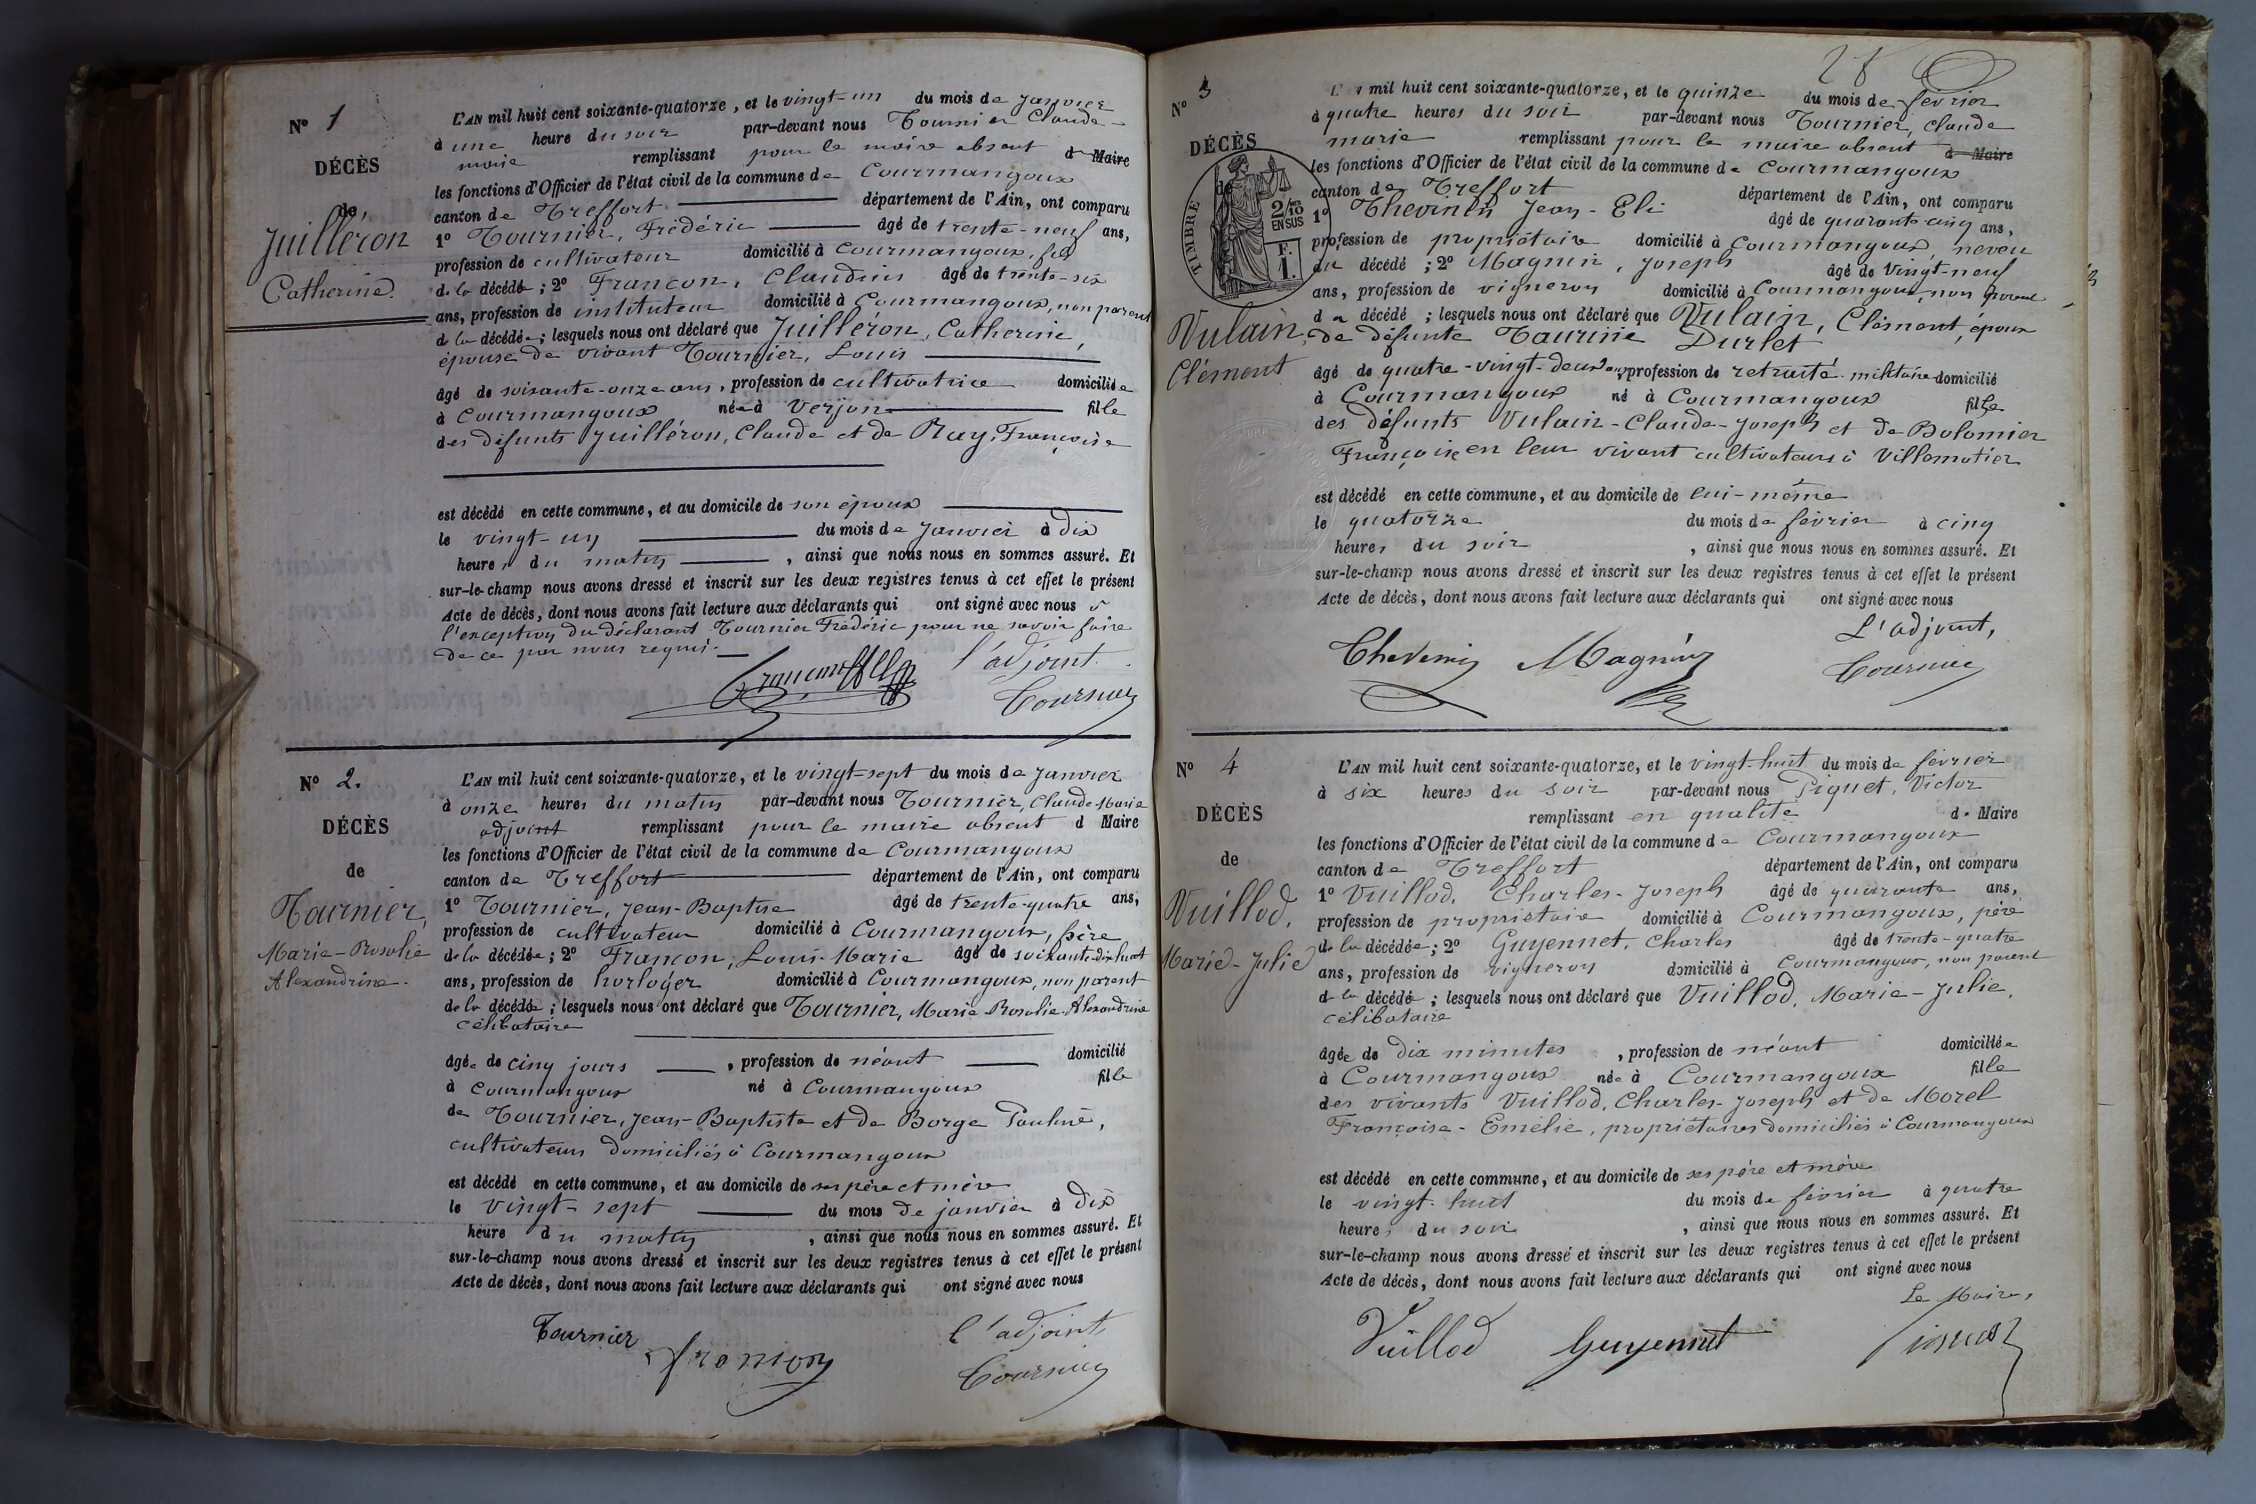 N° 1
DÉCÈS
de
Juilléron
Catherine.
L'AN mil huit cent soixante-quatorze, et le vingt-un du mois de janvier
à une heure du soir par-devant nous Tournier Claude-
marie remplissant pour le maire absent d Maire
les fonctions d'Officier de l'état civil de la commune de Courmangoux
canton de Treffort département de l'Ain, ont comparu
1° Tournier, Frédéric âgé de trente-neuf ans,
profession de cultivateur domicilié à Courmangoux, fils
de la décédée ; 2° Francon, Claudius âgé de trente-six
ans, profession de instituteur domicilié à Courmangoux, non parent
de la décédée ; lesquels nous ont déclaré que Juilléron, Catherine,
épouse de vivant Tournier, Louis
âgé de soixante-onze ans, profession de cultivatrice domiciliée
à Courmangoux née à Verjon fille
des défunts Juilléron, Claude et de Ray, Françoise
est décédé en cette commune, et au domicile de son époux
le vingt-un du mois de janvier à dix
heures du matin , ainsi que nous nous en sommes assuré. Et
sur-le-champ nous avons dressé et inscrit sur les deux registres tenus à cet effet le présent
Acte de décès, dont nous avons fait lecture aux déclarants qui ont signé avec nous à
l'exception du déclarant Tournier Frédéric pour ne savoir faire
de ce par nous requis.
l'adjoint.
Tournier
N° 2.
DÉCÈS
de
Tournier,
Marie-Rosalie
Alexandrine.
L'AN mil huit cent soixante-quatorze, et le vingt-sept du mois de janvier
à onze heures du matin par-devant nous Tournier, Claude Marie
adjoint remplissant pour le maire absent d Maire
les fonctions d'Officier de l'état civil de la commune de Courmangoux
canton de Treffort département de l'Ain, ont comparu
1° Tournier, Jean-Baptise âgé de trente-quatre ans,
profession de cultivateur domicilié à Courmangoux, père
de la décédée ; 2° Francon, Louis-Marie âgé de soixante-dix-huit
ans, profession de horloger domicilié à Courmangoux, non parent
de la décédée ; lesquels nous ont déclaré que Tournier, Marie-Rosalie-Alexandrine
célibataire
âgée de cinq jours , profession de néant domicilié
à Courmangoux né à Courmangoux fille
de Tournier, Jean-Baptiste et de Borge Pauline,
cultivateurs domiciliés à Courmangoux
est décédé en cette commune, et au domicile de ses père et mère
le vingt-sept du mois de janvier à dix
heure du matin , ainsi que nous nous en sommes assuré. Et
sur-le-champ nous avons dressé et inscrit sur les deux registres tenus à cet effet le présent
Acte de décès, dont nous avons fait lecture aux déclarants qui ont signé avec nous
Tournier
l'adjoint,
Tournier
28
N° 3
DÉCÈS
TIMBRE
2/10 EN SUS
F. 1.
Vulain,
Clément
L'AN mil huit cent soixante-quatorze, et le quinze du mois de février
à quatre heures du soir par-devant nous Tournier, Claude
marie remplissant pour le maire absent d Maire
les fonctions d'Officier de l'état civil de la commune de Courmangoux
canton de Treffort département de l'Ain, ont comparu
1° Thevenin Jean-Eli âgé de quarante-cinq ans,
profession de propriétaire domicilié à Courmangoux, neveu
du décédé ; 2° Magnin, Joseph âgé de vingt-neuf
ans, profession de vigneron domicilié à Courmangoux, non parent
du décédé ; lesquels nous ont déclaré que Vulain, Clément, époux
de défunte Taurine Durlet
âgé de quatre-vingt-deux ans, profession de retraité militaire domicilié
à Courmangoux né à Courmangoux fils
des défunts Vulain-Claude-Joseph et de Bolomier
Françoise en leur vivant cultivateurs à Villemotier
est décédé en cette commune, et au domicile de lui-même
le quatorze du mois de février à cinq
heures du soir , ainsi que nous nous en sommes assuré. Et
sur-le-champ nous avons dressé et inscrit sur les deux registres tenus à cet effet le présent
Acte de décès, dont nous avons fait lecture aux déclarants qui ont signé avec nous
L'adjoint,
Thevenin Magnin Tournier
N° 4
DÉCÈS
de
Vuillod,
Marie-Julie
L'AN mil huit cent soixante-quatorze, et le vingt-huit du mois de février
à six heures du soir par-devant nous Piquet, Victor
remplissant en qualité de Maire
les fonctions d'Officier de l'état civil de la commune de Courmangoux
canton de Treffort département de l'Ain, ont comparu
1° Vuillod, Charles-Joseph âgé de quarante ans,
profession de propriétaire domicilié à Courmangoux, père
de la décédée ; 2° Guyennet, Charles âgé de trente-quatre
ans, profession de vigneron domicilié à Courmangoux, non parent
de la décédé ; lesquels nous ont déclaré que Vuillod, Marie-Julie,
célibataire
âgée de dix minutes , profession de néant domiciliée
à Courmangoux née à Courmangoux fille
des vivants Vuillod, Charles-Joseph et de Morel
Françoise-Emélie, propriétaires domiciliés à Courmangoux
est décédé en cette commune, et au domicile de ses père et mère
le vingt-huit du mois de février à quatre
heures du soir , ainsi que nous nous en sommes assuré. Et
sur-le-champ nous avons dressé et inscrit sur les deux registres tenus à cet effet le présent
Acte de décès, dont nous avons fait lecture aux déclarants qui ont signé avec nous
Le Maire,
Vuillod Guyennet Piquet